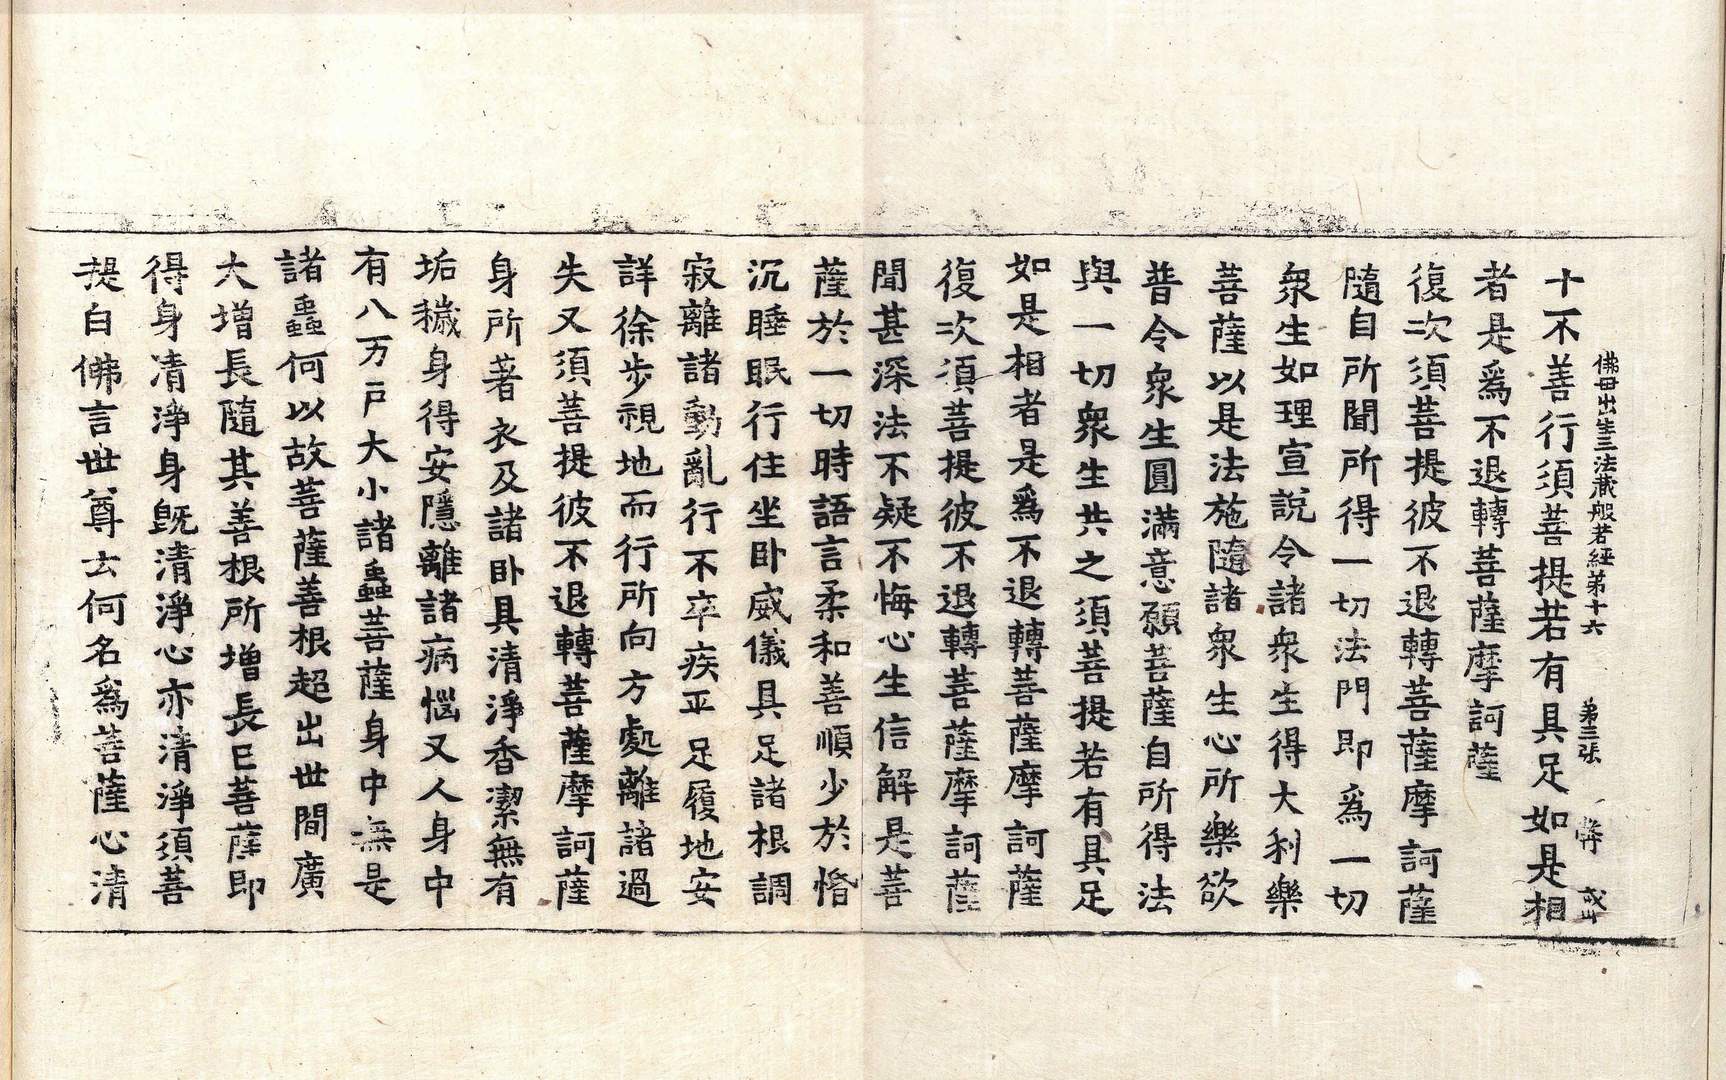 佛母出生三法藏般若經第十六 第三張
十不善行須菩提若有具足如是相
者是爲不退轉菩薩摩訶薩
復次須菩提彼不退轉菩薩摩訶薩
隨自所聞所得一切法門即爲一切
衆生如理宣說令諸衆生得大利樂
菩薩以是法施隨諸衆生心所樂欲
普令衆生圓滿意願菩薩自所得法
與一切衆生共之須菩提若有具足
如是相者是爲不退轉菩薩摩訶薩
復次須菩提彼不退轉菩薩摩訶薩
聞甚深法不疑不悔心生信解是菩
薩於一切時語言柔和善順少於惛
沉睡眠行住坐卧威儀具足諸根調
寂離諸動亂行不卒疾平足履地安
詳徐步視地而行所向方處離諸過
失又須菩提彼不退轉菩薩摩訶薩
身所著衣及諸卧具清淨香潔無有
垢穢身得安隱離諸病惱又人身中
有八万戶大小諸蟲菩薩身中無是
諸蟲何以故菩薩善根超出世間廣
大增長隨其善根所增長已菩薩即
得身清淨身旣清淨心亦清淨須菩
提白佛言世尊云何名爲菩薩心清